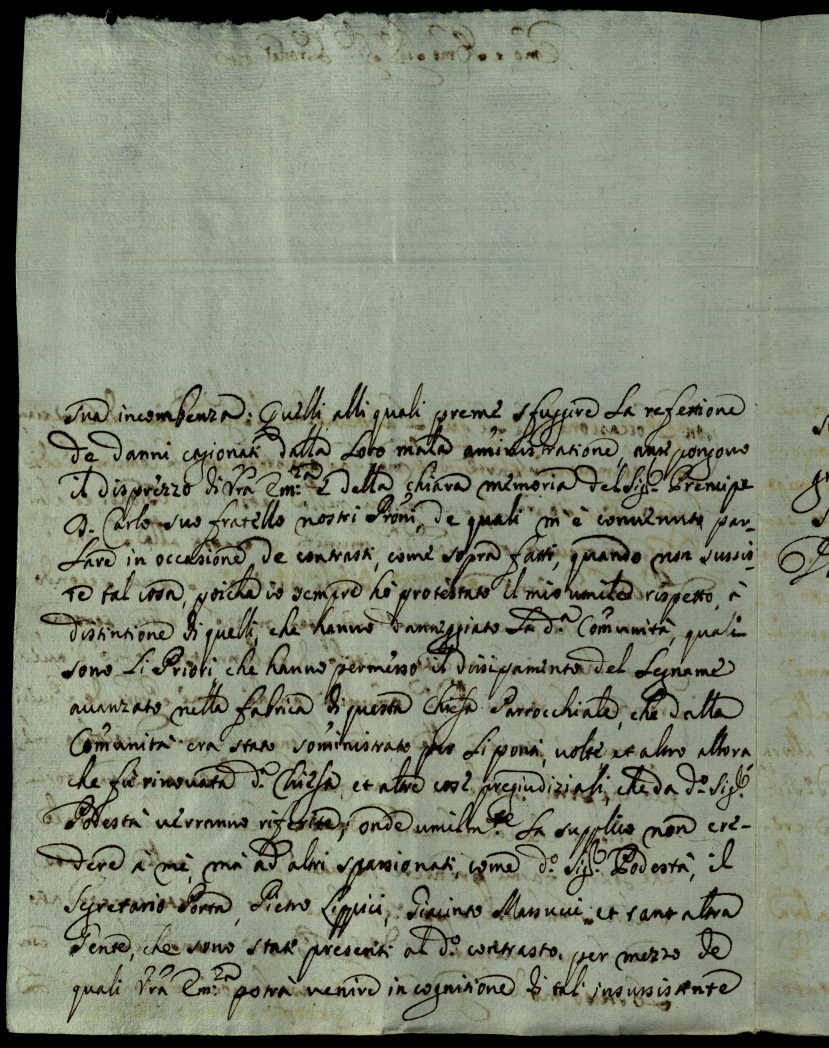 sua incombenza: Quelli alli quali preme sfuggire la refettione
de danni cagionati dalla loro mala aministratione, antepongono
il disprezzo di Vrã Em.za è della chiara memoria del Sig.r Prencipe
D. Carlo suo fratello nostri Prõni, de quali m'è convenuto par-
lare in occasione de contrasti, come sopra fatti, quando non sussis-
te tal cosa, poiche io sempre hò protestato il mio umile rispetto, à
distintione di quelli, che hanno danneggiato la d.a Comũnità, quali
sono li Priori, che hanno permesso il dissipamento del legname
avanzato nella fabrica di questa Chiesa Parrocchiale, che dalla
Comũnità era stato somĩnistrato per li ponti, volte et altro allora
che fù rinovata d.a Chiesa, et altre cose pregiudiziali, che da d.o Sig.r
Podestà verranno riferite; onde umilm.te la supplico non cre-
dere à me, mà ad altri spassionati, come d.o Sig.r Podestà, il
Segretario Porta, Pietro Lippici, Giacinto Massucci et tant'altra
Gente, che sono stati presenti al d.o contrasto, per mezzo de
quali Vrã Em.za potrà venire in cognitione di tal insussistente